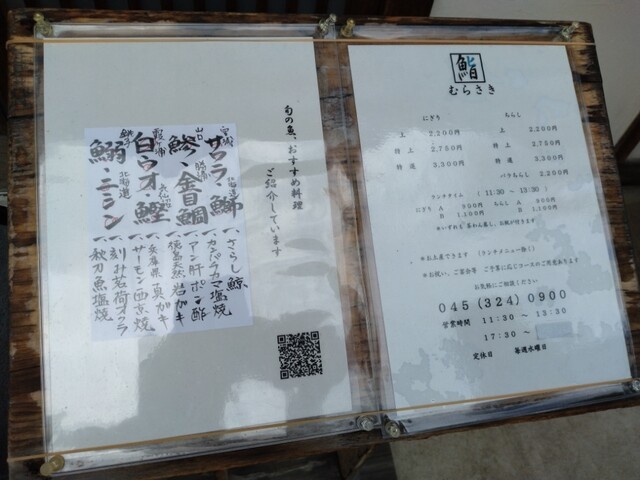 旬の魚、おすすめ料理
ご紹介しています
サワラ・鰤
鯵・金目鯛
白ウオ・鰹
鰯・ニシン
北海道
一、さらし鯨
一、カンパチカマ塩焼
一、アン肝ポン酢
一、徳島天然岩ガキ
一、兵庫県真ガキ
一、サーモン西京焼
一、刻み茗荷オクラ
一、秋刀魚塩焼
鮨
むらさき
にぎり ちらし
上 2,200円 上 2,200円
特上 2,750円 特上 2,750円
特選 3,300円 特選 3,300円
バラちらし 2,200円
ランチタイム (11:30～13:30)
にぎり A 900円 ちらし A 900円
B 1,100円 B 1,100円
※いずれも茶わん蒸し、お椀が付きます
※お土産できます (ランチメニュー除く)
※お祝い、ご宴会等 ご予算に応じコースのご用意あります
お気軽にご相談ください
045(324)0900
営業時間 11:30－13:30
17:30－
定休日 毎週水曜日